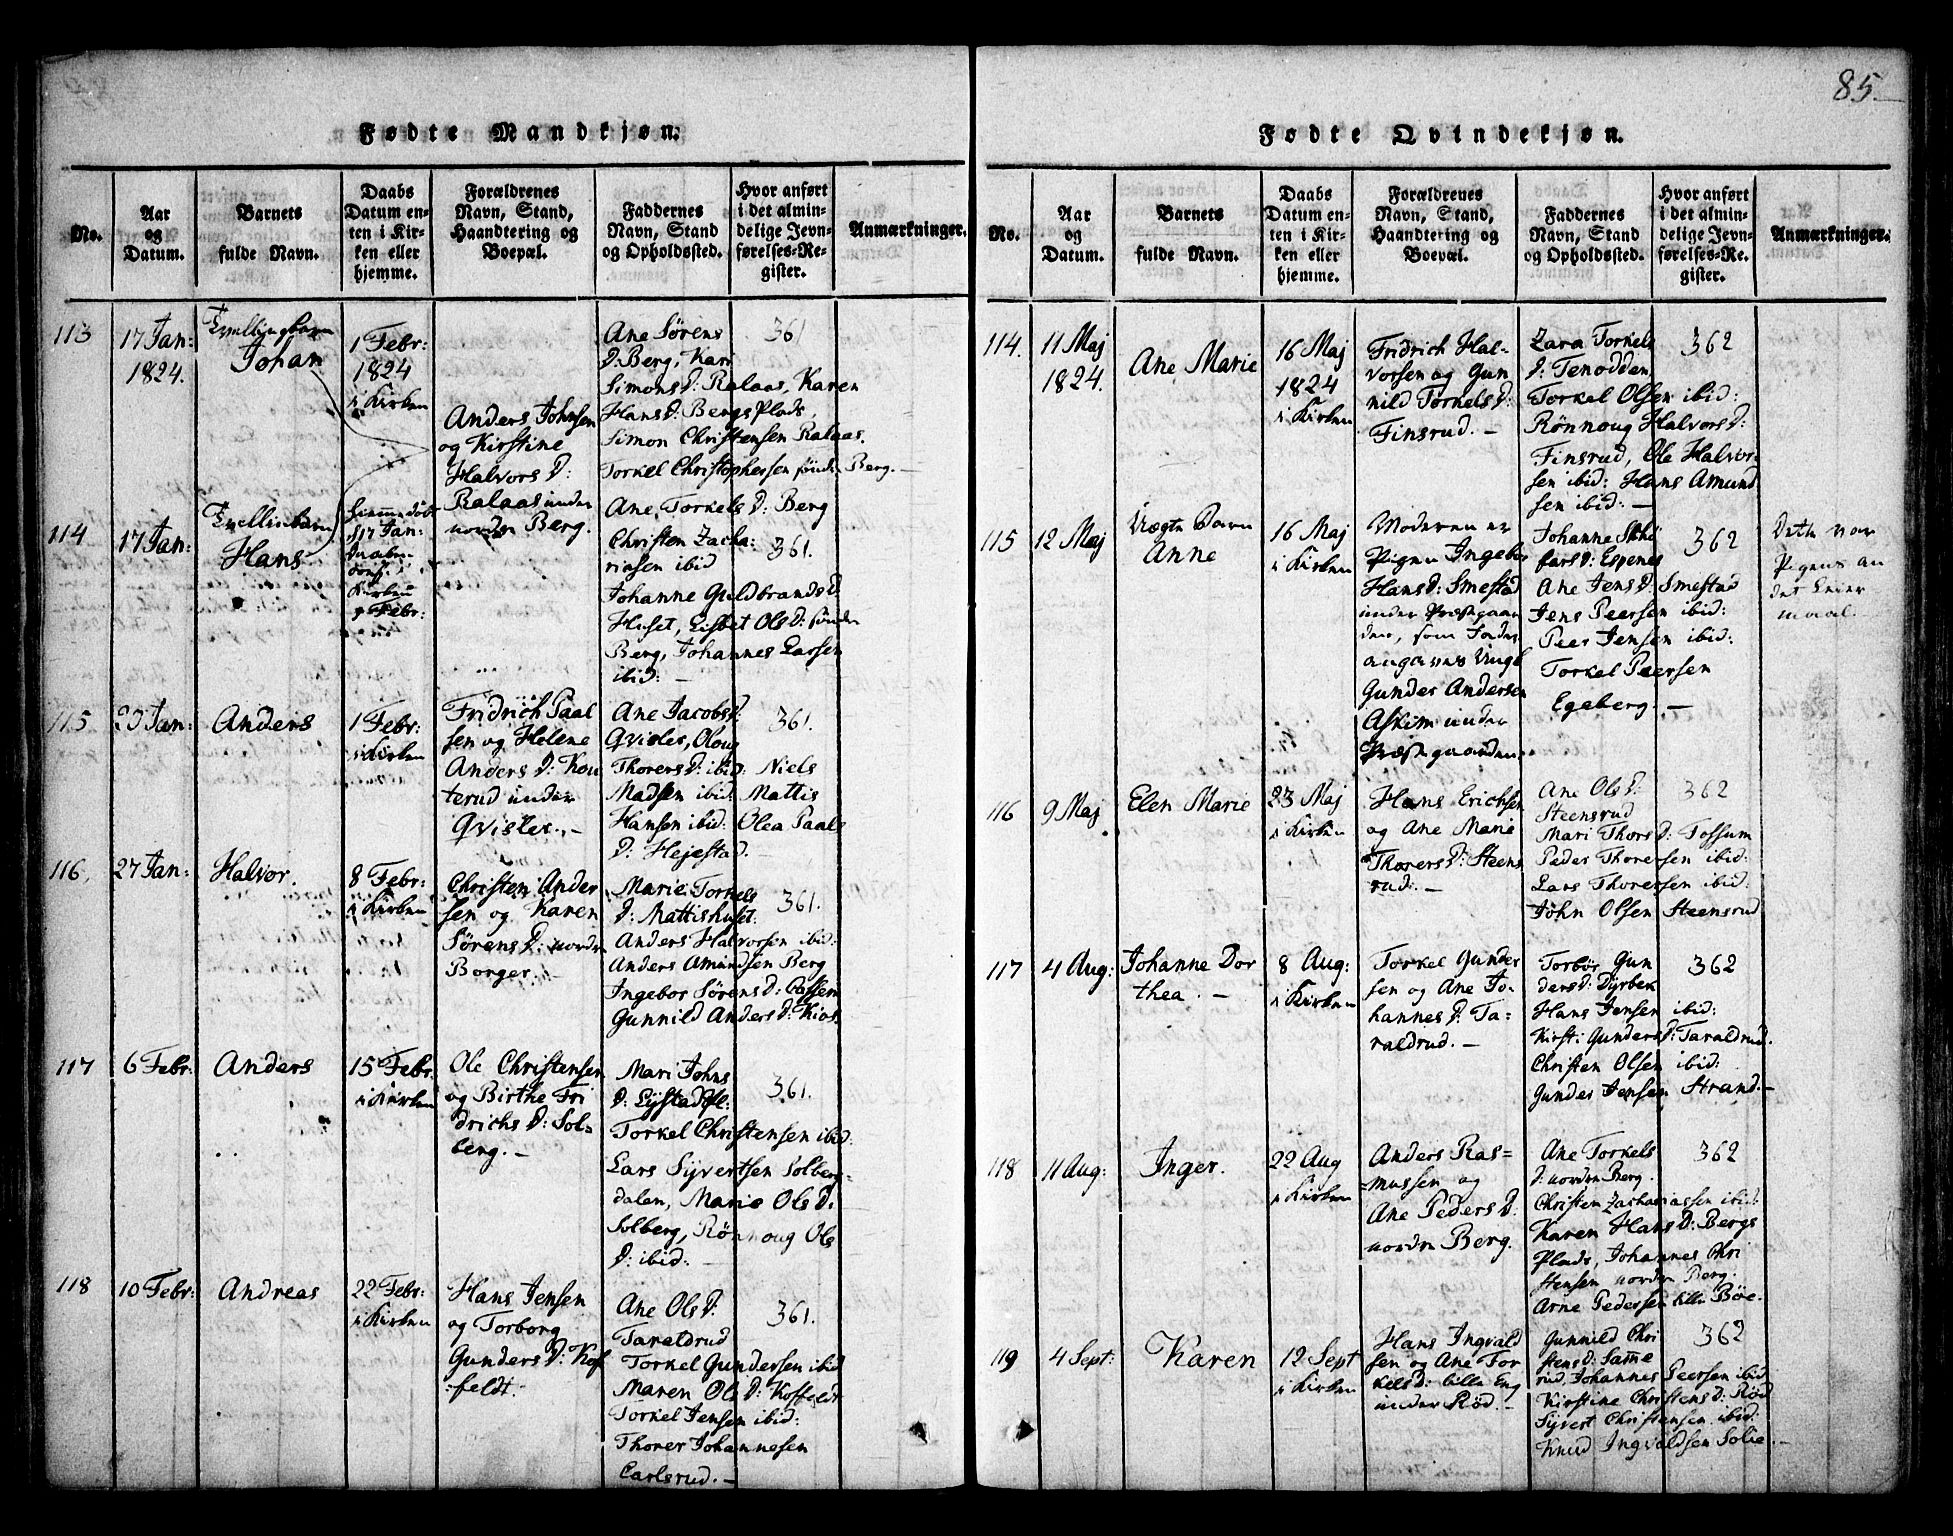 85.
Fødte Mandkjøn.
No.
Aar
og
Datum.
Barnets
fulde Navn.
Daabs
Datum en-
ten i Kir-
ken eller
hjemme.
Forældrenes
Navn, Stand,
Haandtering og
Boepæl.
Faddernes
Navn, Stand
og Opholdssted.
Hvor anført
i det almin-
delige Jevn-
førelses-Re-
gister.
Anmærkninger.
113
17 Jan:
1824.
Tvillingbarn
Johan
1 Febr:
1824
i Kirken
Anders Johnsen
og Kirstine
Halvors D:
Ralaas under
nordre Berg.
Ane Sørens
D: Berg, Kari
Simons D: Ralaas, Karen
Hans D: Bergs Plads,
Simon Christensen Ralaas.
Torkel Christophersen Berg. —
361
114
17 Jan:
Tvillinbarn
Hans
17 Jan:
Kirken
Febr:
Ane Torkels D: Berg
Christen Zacha:
riasen ibid
Johanne Guldbrands D:
Huset, Lisbet Ols D:
Berg, Johannes Larsen
ibid: —
361.
115
Jan:
Anders
1 Febr:
i Kirken
Fridrich Paal
sen og Helene
Anders D: Kou
terud under
Qvisler. —
Ane Jacobs D:
Qvisler, Oloug
Thorers D: ibid: Niels
Madsen ibid: Mattis
Hansen ibid: Olea Paals
D: Hejestad. —
361.
116.
27 Jan:
Halvor.
8 Febr:
i Kirken
Christen Ander
sen og Karen
Sørens D: nordre
Borger. —
Marie Torkels
D: Mattishuset.
Anders Halvorsen ibid:
Anders Amundsen Berg
Ingebor Sørens D:
Gunnild Anders D:
361.
117
6 Febr:
Anders
15 Febr:
i Kirken
Ole Christensen
og Birthe Fri
drichs D: Sol-
berg. —
Mari Johns
D: Lystad Pl:
Torkel Christensen ibid:
Lars Syvertsen Solberg-
dalen, Marie Ols D:
Solberg, Rønnoug Ols
D: ibid: —
361.
118
10 Febr:
Andreas
22 Febr:
i Kirken
Hans Jensen
og Torborg
Gunders D: Kof
feldt.
Ane Ols D:
Taraldrud
Torkel Gundersen ibid
Maren Ols D: Koffeldt
Torkel Jensen ibid:
Thorer Johannesen
Carlsrud. —
361.
Fødte Qvindekjøn.
No.
Aar
og
Datum.
Barnets
fulde Navn.
Daabs
Datum en-
ten i Kir-
ken eller
hjemme.
Forældrenes
Navn, Stand,
Haandtering og
Boepæl.
Faddernes
Navn, Stand
og Opholdssted.
Hvor anført
i det almin-
delige Jevn-
førelses-Re-
gister.
Anmærkninger.
114.
11 Maj
1824.
Ane Marie
16 Maj
1824
i Kirken
Fridrich Hal-
vorsen og Gun
nild Torkels D:
Finsrud. —
Zara Torkels
D: Tenodden,
Torkel Olsen ibid:
Rønnoug Halvors D:
Finsrud, Ole Halvor-
sen ibid: Hans Amund
sen ibid: —
362
115
12 Maj
Uægte Barn
Anne
16 Maj
i Kirken
Moderen er
Pigen Ingebor
Hans D: Smestad
under Præstegaar
den, som
angaves Ungk
Gunder Andersen
Askim under
Præstegaarden.
Johanne
fars D: Espenes
Ane Jens D: Smestad
Jens Peersen ibid:
Peer Jensen ibid:
Torkel Peersen
Egeberg. —
362
Dette var
Pigens an
det Leier
maal.
116
9 Maj
Elen Marie
23 Maj
i Kirken
Hans Erichsen
og Ane Marie
Thorers D: Steens
rud. —
Ane Ols D:
Steensrud
Mari Thors D: Tossum
Peder Thoresen ibid:
Lars Thoresen ibid:
John Olsen Steensrud
362
117
4 Aug:
Johanne Dor
thea. —
8 Aug:
i Kirken
Torkel Gunder
sen og Ane Jo-
hannes D: Ta-
raldrud. —
Torbør Gun
ders D: Dyrbek
Hans Jensen ibid:
Kirsti Gunders D: Taraldrud.
Christen Olsen ibid:
Gunder Jensen Strand. —
362
118
11 Aug:
Inger.
22 Aug
i Kirken
Anders Ras=
mussen og
Ane Peders D:
nordre Berg.
Ane Torkels
D: nordre Berg.
Christen Zachariassen ibid:
Karen Hans D: Bergs
Plads, Johannes Chri
stensen nordre Berg:
Arne Pedersen lille Bøe.
362
119
4 Sept:
Karen
12 Sept
i Kirken
Hans Ingvald
sen og Ane Tor
kels D: lille Eng
under Rød. —
Gunnild Chri
stens D: Samme
rud, Johannes Peersen ibid
Kirstine Christens D: Rød
Syvert Christensen ibid:
Knud Ingvaldsen Solie. —
362